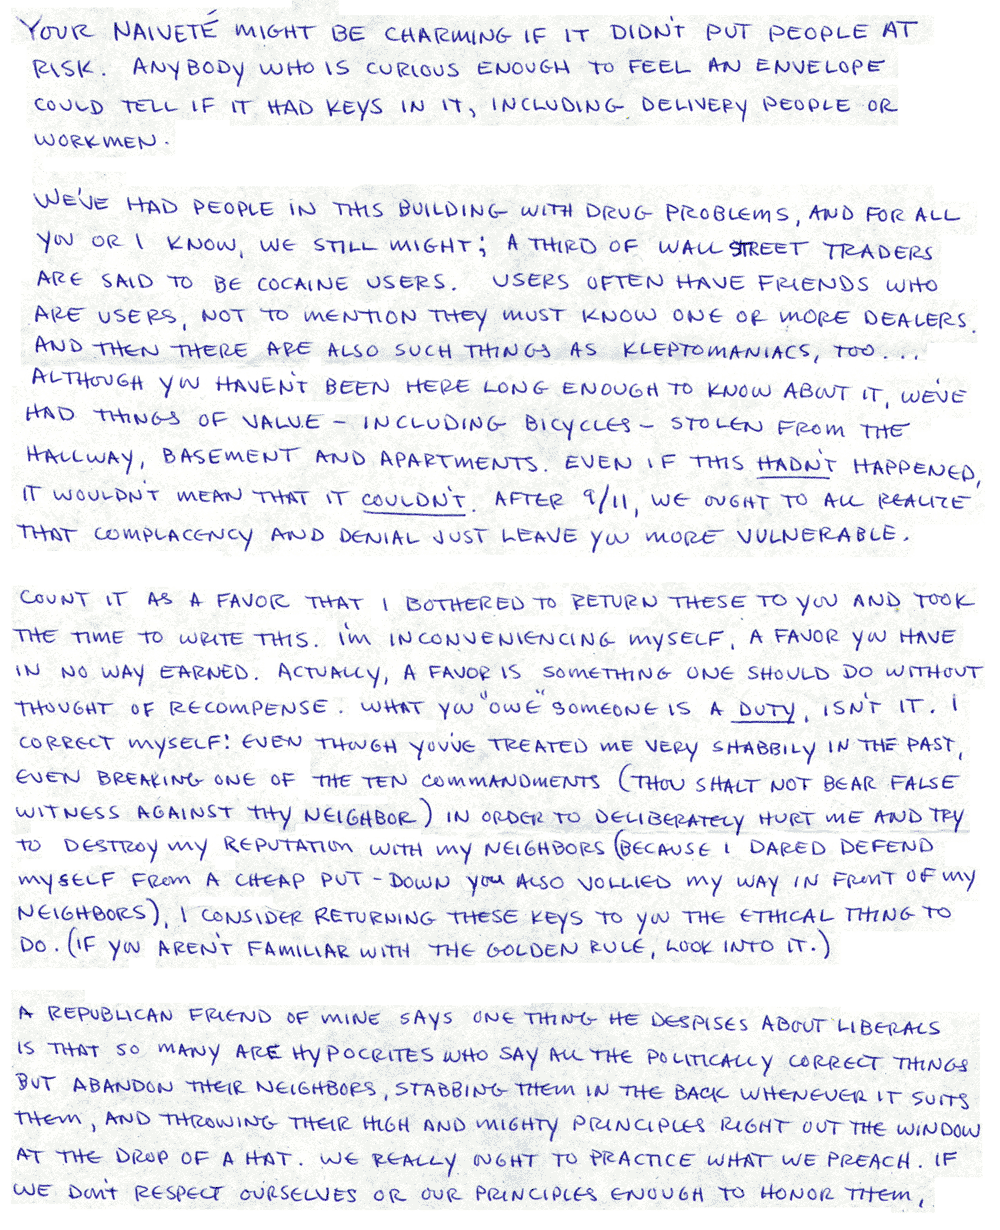 YOUR NAIVETÉ MIGHT BE CHARMING IF IT DIDN'T PUT PEOPLE AT
RISK. ANYBODY WHO IS CURIOUS ENOUGH TO FEEL AN ENVELOPE
COULD TELL IF IT HAD KEYS IN IT, INCLUDING DELIVERY PEOPLE OR
WORKMEN.
WE'VE HAD PEOPLE IN THIS BUILDING WITH DRUG PROBLEMS, AND FOR ALL
YOU OR I KNOW, WE STILL MIGHT; A THIRD OF WALL STREET TRADERS
ARE SAID TO BE COCAINE USERS. USERS OFTEN HAVE FRIENDS WHO
ARE USERS, NOT TO MENTION THEY MUST KNOW ONE OR MORE DEALERS.
AND THEN THERE ARE ALSO SUCH THINGS AS KLEPTOMANIACS, TOO...
ALTHOUGH YOU HAVEN'T BEEN HERE LONG ENOUGH TO KNOW ABOUT IT, WE'VE
HAD THINGS OF VALUE - INCLUDING BICYCLES - STOLEN FROM THE
HALLWAY, BASEMENT AND APARTMENTS. EVEN IF THIS HADN'T HAPPENED,
IT WOULDN'T MEAN THAT IT COULDN'T. AFTER 9/11, WE OUGHT TO ALL REALIZE
THAT COMPLACENCY AND DENIAL JUST LEAVE YOU MORE VULNERABLE.
COUNT IT AS A FAVOR THAT I BOTHERED TO RETURN THESE TO YOU AND TOOK
THE TIME TO WRITE THIS. I'M INCONVENIENCING MYSELF, A FAVOR YOU HAVE
IN NO WAY EARNED. ACTUALLY, A FAVOR IS SOMETHING ONE SHOULD DO WITHOUT
THOUGHT OF RECOMPENSE. WHAT YOU "OWE" SOMEONE IS A DUTY, ISN'T IT. I
CORRECT MYSELF! EVEN THOUGH YOU'VE TREATED ME VERY SHABBILY IN THE PAST,
EVEN BREAKING ONE OF THE TEN COMMANDMENTS (THOU SHALT NOT BEAR FALSE
WITNESS AGAINST THY NEIGHBOR) IN ORDER TO DELIBERATELY HURT ME AND TRY
TO DESTROY MY REPUTATION WITH MY NEIGHBORS (BECAUSE I DARED DEFEND
MYSELF FROM A CHEAP PUT-DOWN YOU ALSO VOLLIED MY WAY IN FRONT OF MY
NEIGHBORS), I CONSIDER RETURNING THESE KEYS TO YOU THE ETHICAL THING TO
DO. (IF YOU AREN'T FAMILIAR WITH THE GOLDEN RULE, LOOK INTO IT.)
A REPUBLICAN FRIEND OF MINE SAYS ONE THING HE DESPISES ABOUT LIBERALS
IS THAT SO MANY ARE HYPOCRITES WHO SAY ALL THE POLITICALLY CORRECT THINGS
BUT ABANDON THEIR NEIGHBORS, STABBING THEM IN THE BACK WHENEVER IT SUITS
THEM, AND THROWING THEIR HIGH AND MIGHTY PRINCIPLES RIGHT OUT THE WINDOW
AT THE DROP OF A HAT. WE REALLY OUGHT TO PRACTICE WHAT WE PREACH. IF
WE DON'T RESPECT OURSELVES OR OUR PRINCIPLES ENOUGH TO HONOR THEM,